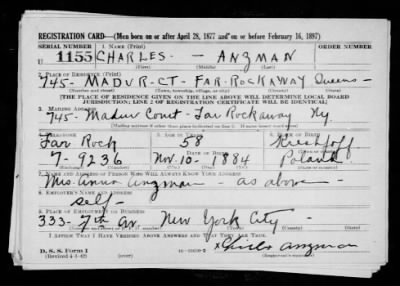 REGISTRATION CARD—(Men born on or after April 28, 1877 and on or before February 16, 1897)
SERIAL NUMBER 1. NAME (Print)
U 1155 CHARLES — ANZMAN
(First) (Middle) (Last)
2. PLACE OF RESIDENCE (Print)
745- MADUR-CT- FAR-ROCKAWAY Queens-
(Number and street) (Town, township, village, or city) (County) (State)
[THE PLACE OF RESIDENCE GIVEN ON THE LINE ABOVE WILL DETERMINE LOCAL BOARD
JURISDICTION; LINE 2 OF REGISTRATION CERTIFICATE WILL BE IDENTICAL]
3. MAILING ADDRESS
745- Madur Court- Far Rockaway Ny.
4. TELEPHONE 5. AGE IN YEARS 6. PLACE OF BIRTH
Far Rock 58
DATE OF BIRTH
7-9236 Nov. 10- 1884 Poland
7. NAME AND ADDRESS OF PERSON WHO WILL ALWAYS KNOW YOUR ADDRESS
Mrs. Anna Anzman - as above-
8. EMPLOYER'S NAME AND ADDRESS
self-
9. PLACE OF EMPLOYMENT OR BUSINESS
333- 7th av. New York City -
(Number and street or R. F. D. number) (Town) (County) (State)
I AFFIRM THAT I HAVE VERIFIED ABOVE ANSWERS AND THAT THEY ARE TRUE.
D. S. S. Form 1
(Revised 4-1-42) (over) x Charles Anzman